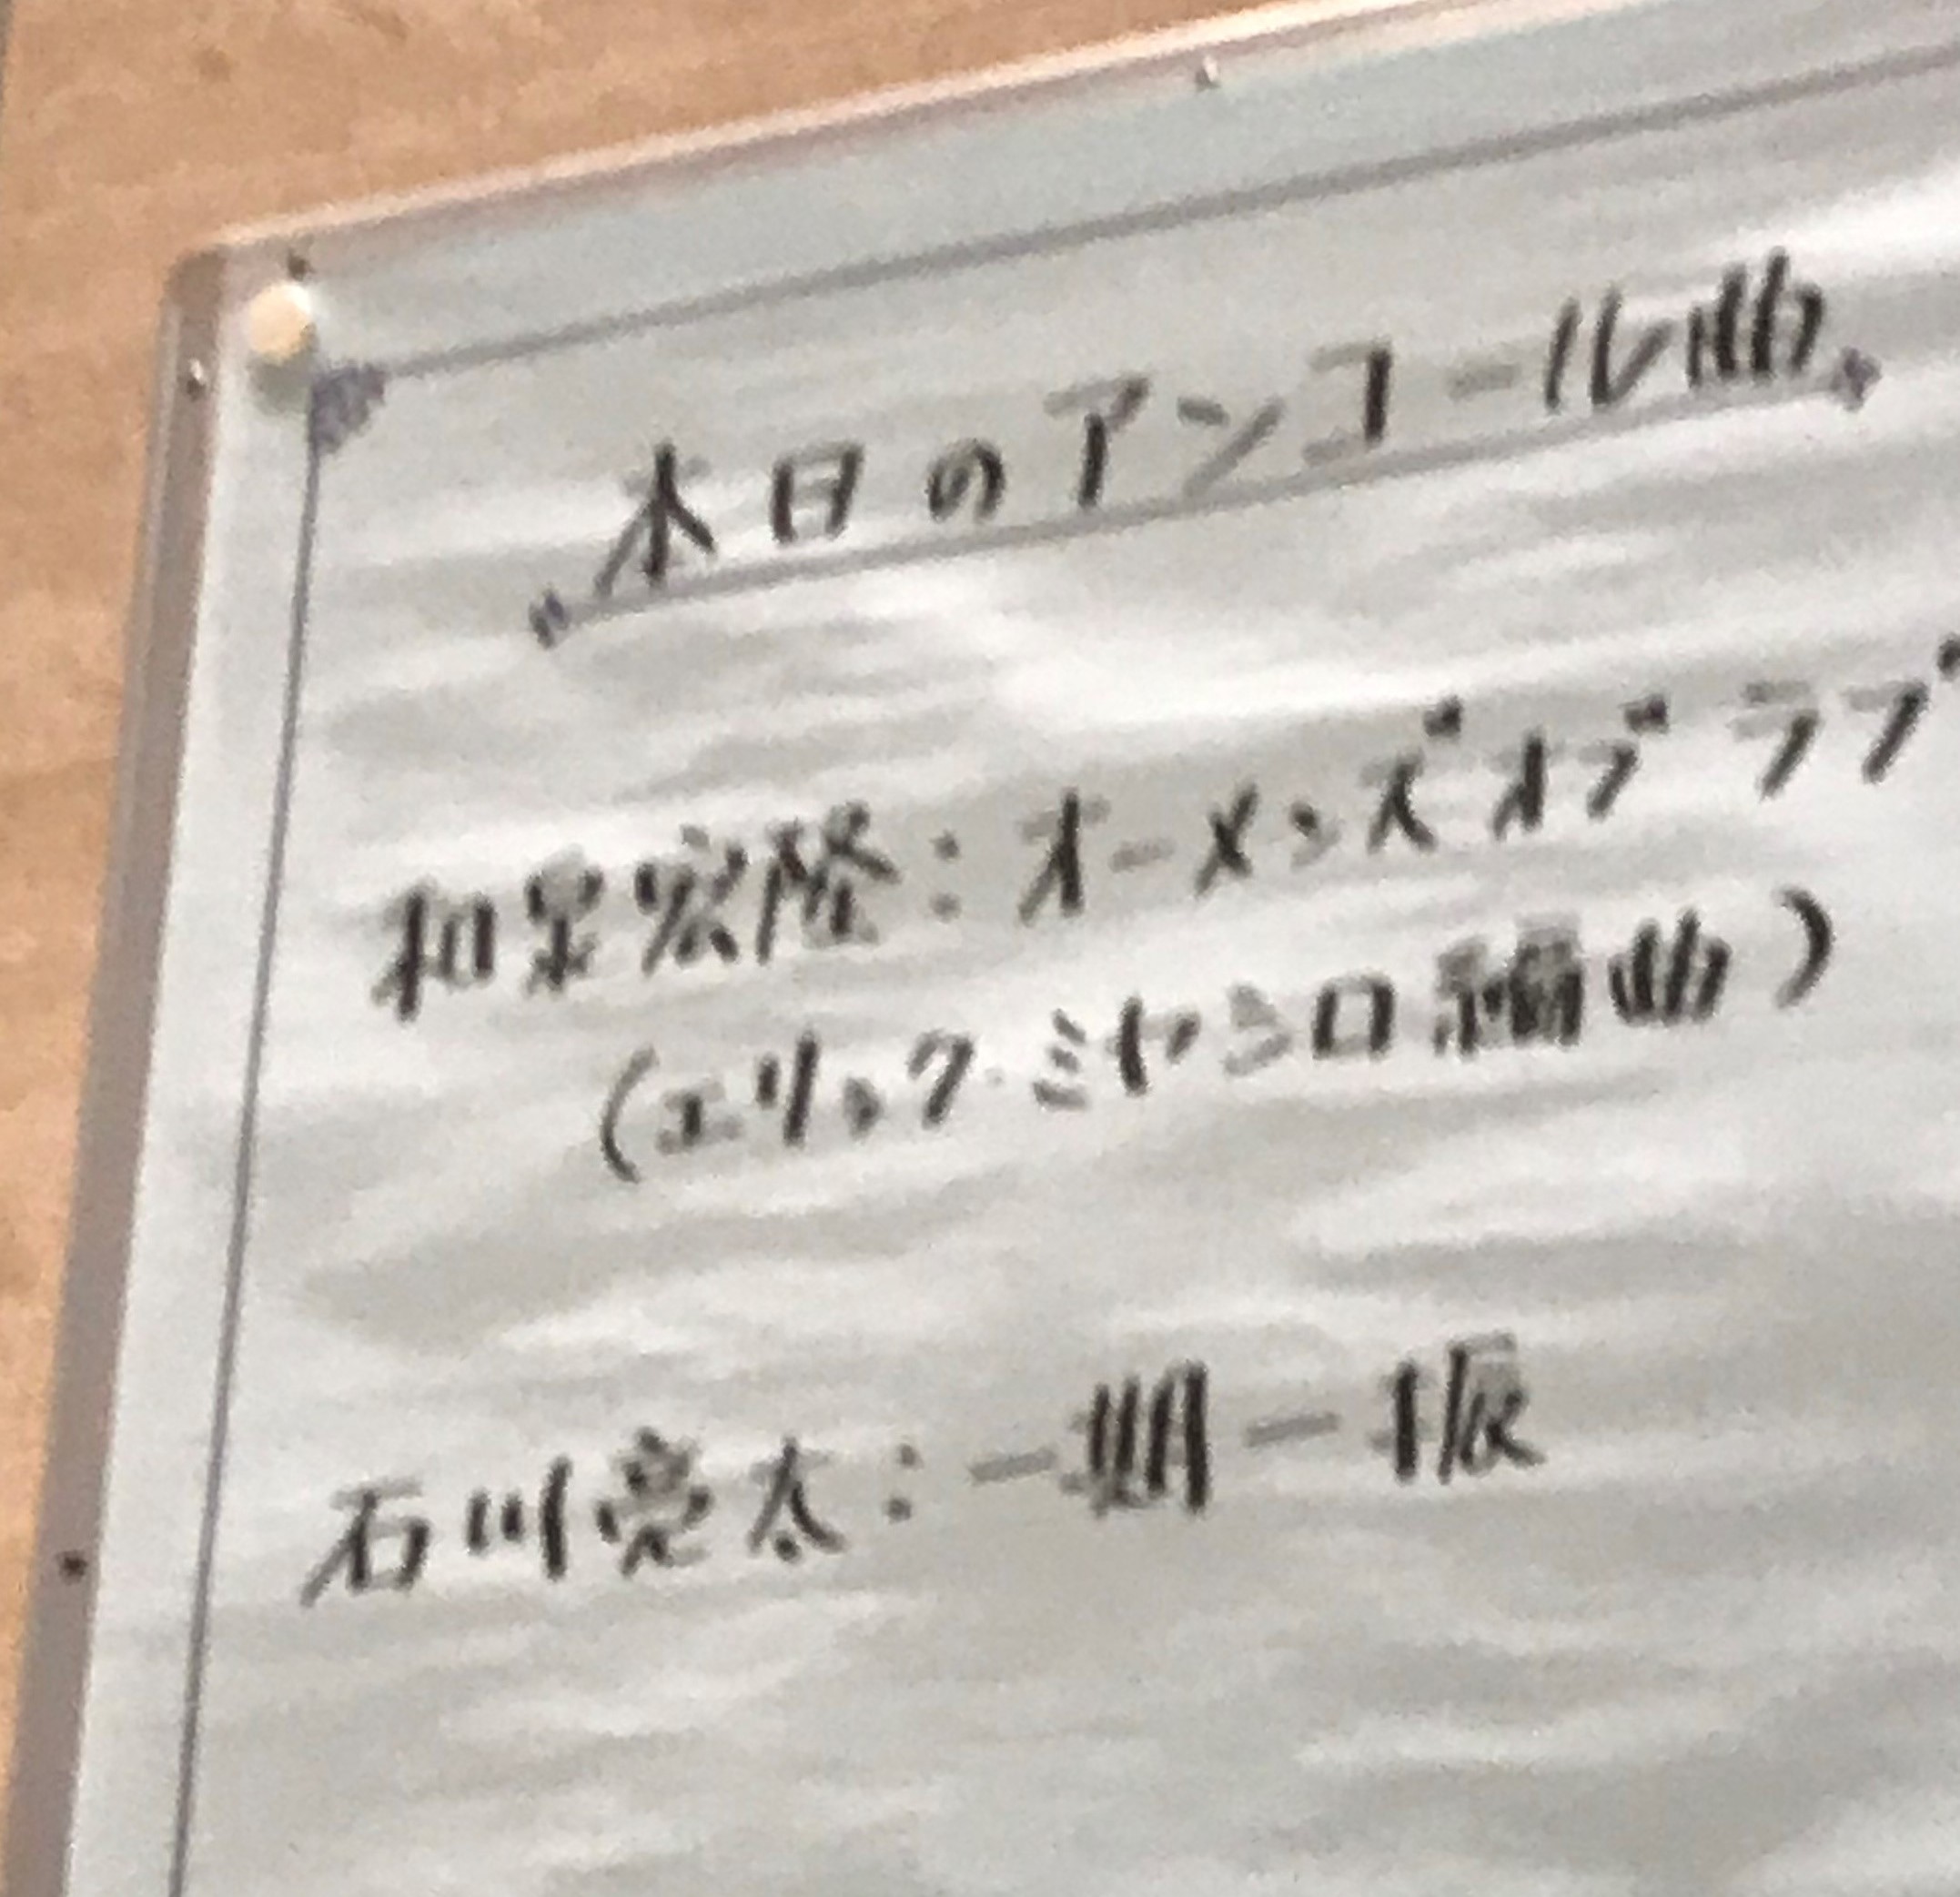 本日のアンコール曲
和泉宏隆：オーメンズオブラブ
（エリック・ミヤシロ編曲）
石川亮太：一期一振